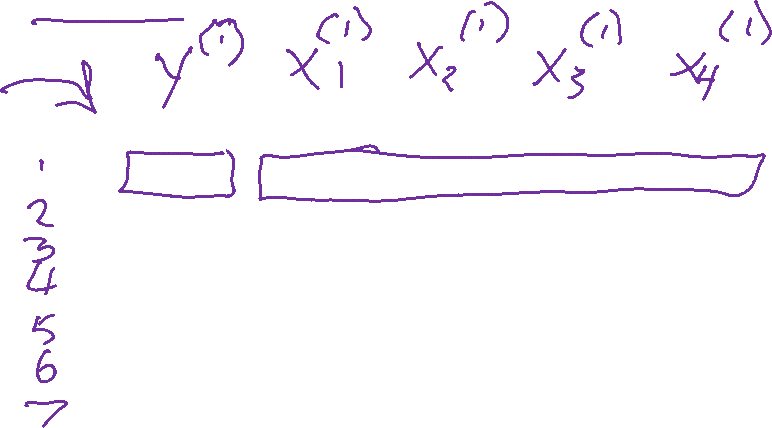 y^(1) x_1^(1) x_2^(1) x_3^(1) x_4^(1)
1
2
3
4
5
6
7